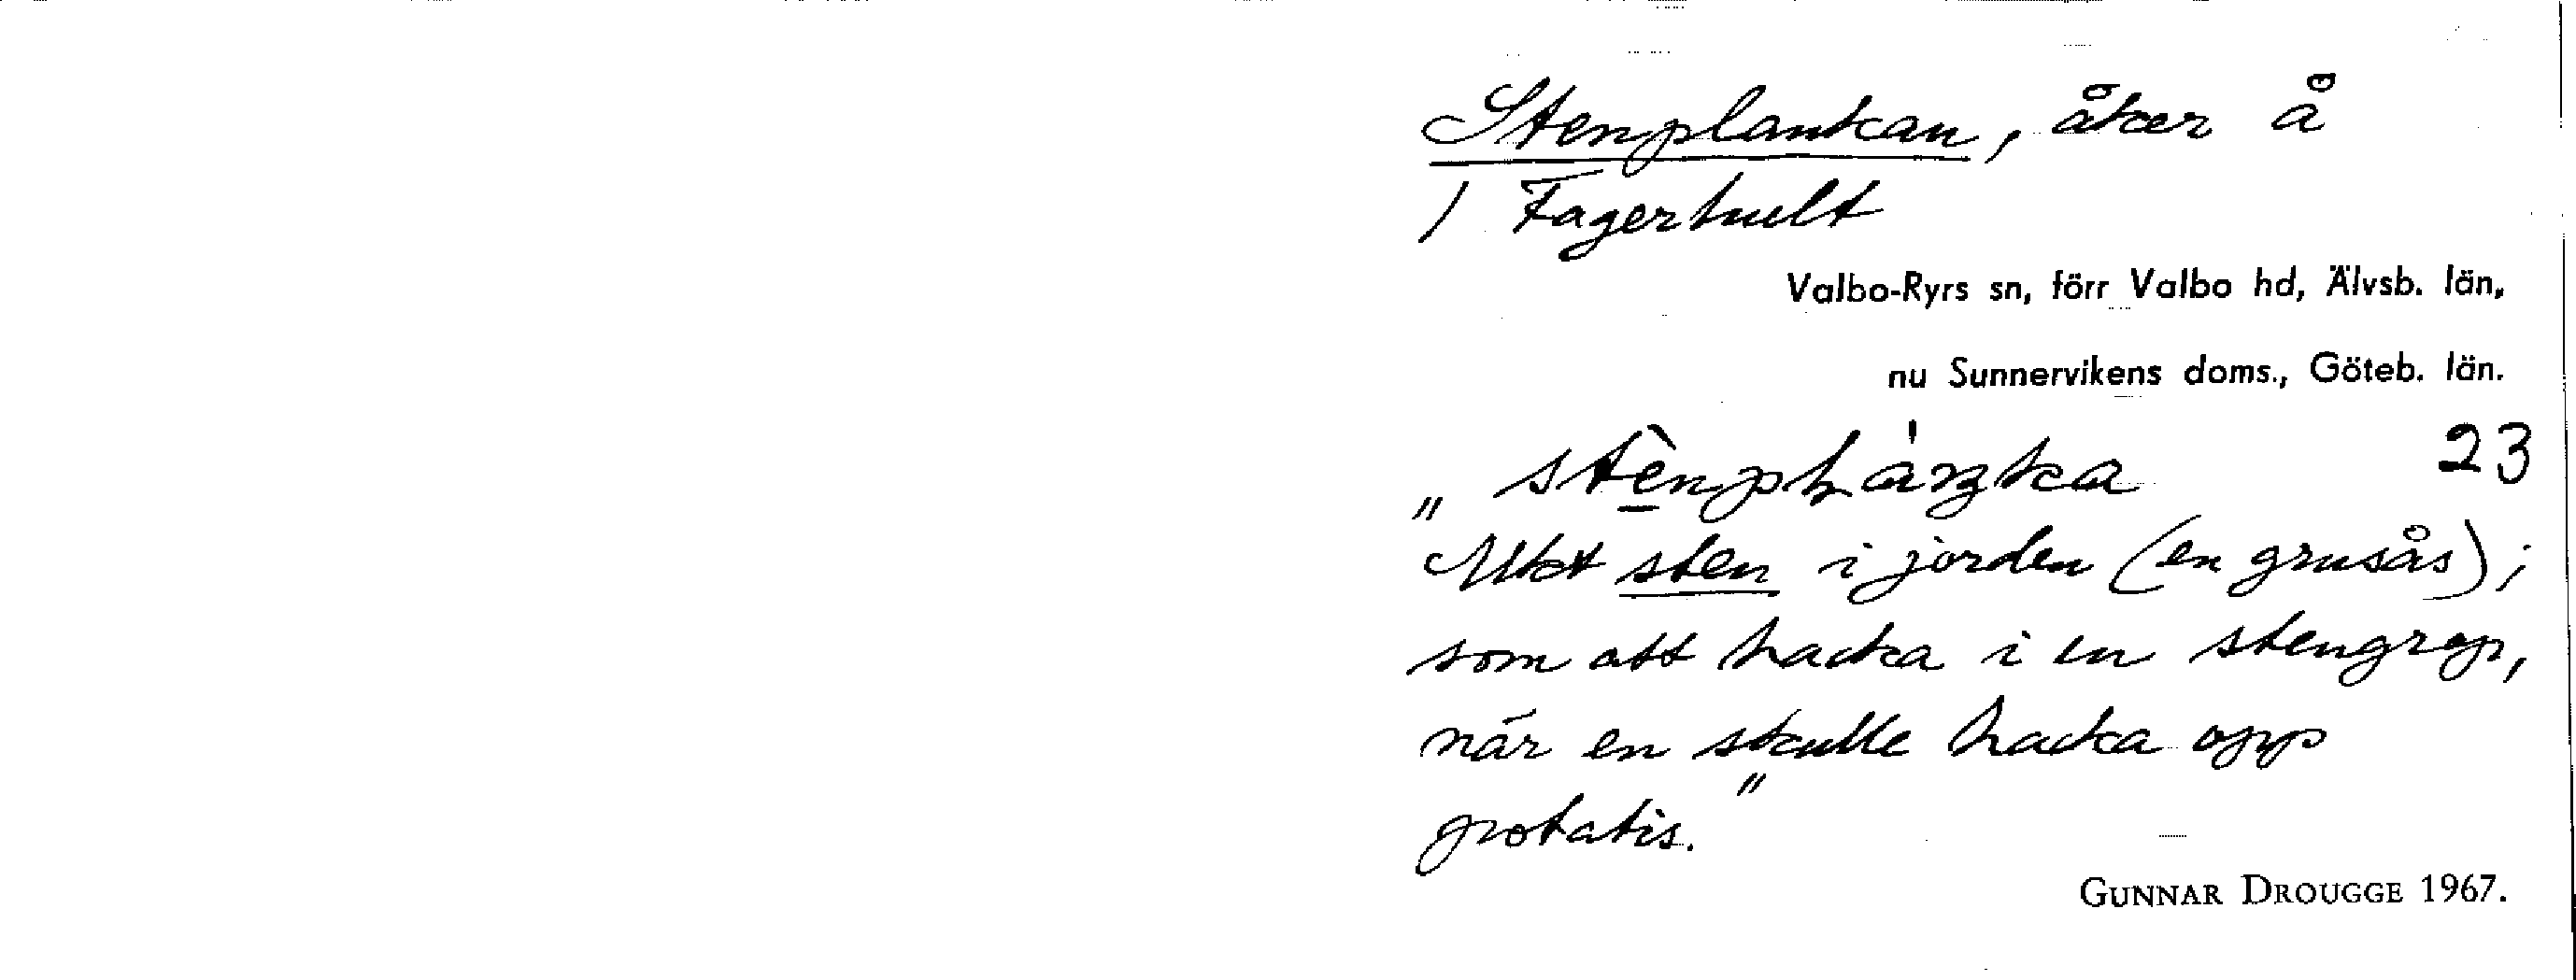 Stenplankan, åker å
1 Fagerhult
Valbo-Ryrs sn, förr Valbo hd, Älvsb. län,
nu Sunnervikens doms., Göteb. län.
23
"
Mkt sten i jorden (en grusås);
som att hacka i en stengrop,
när en skulle hacka opp
potatis."
GUNNAR DROUGGE 1967.